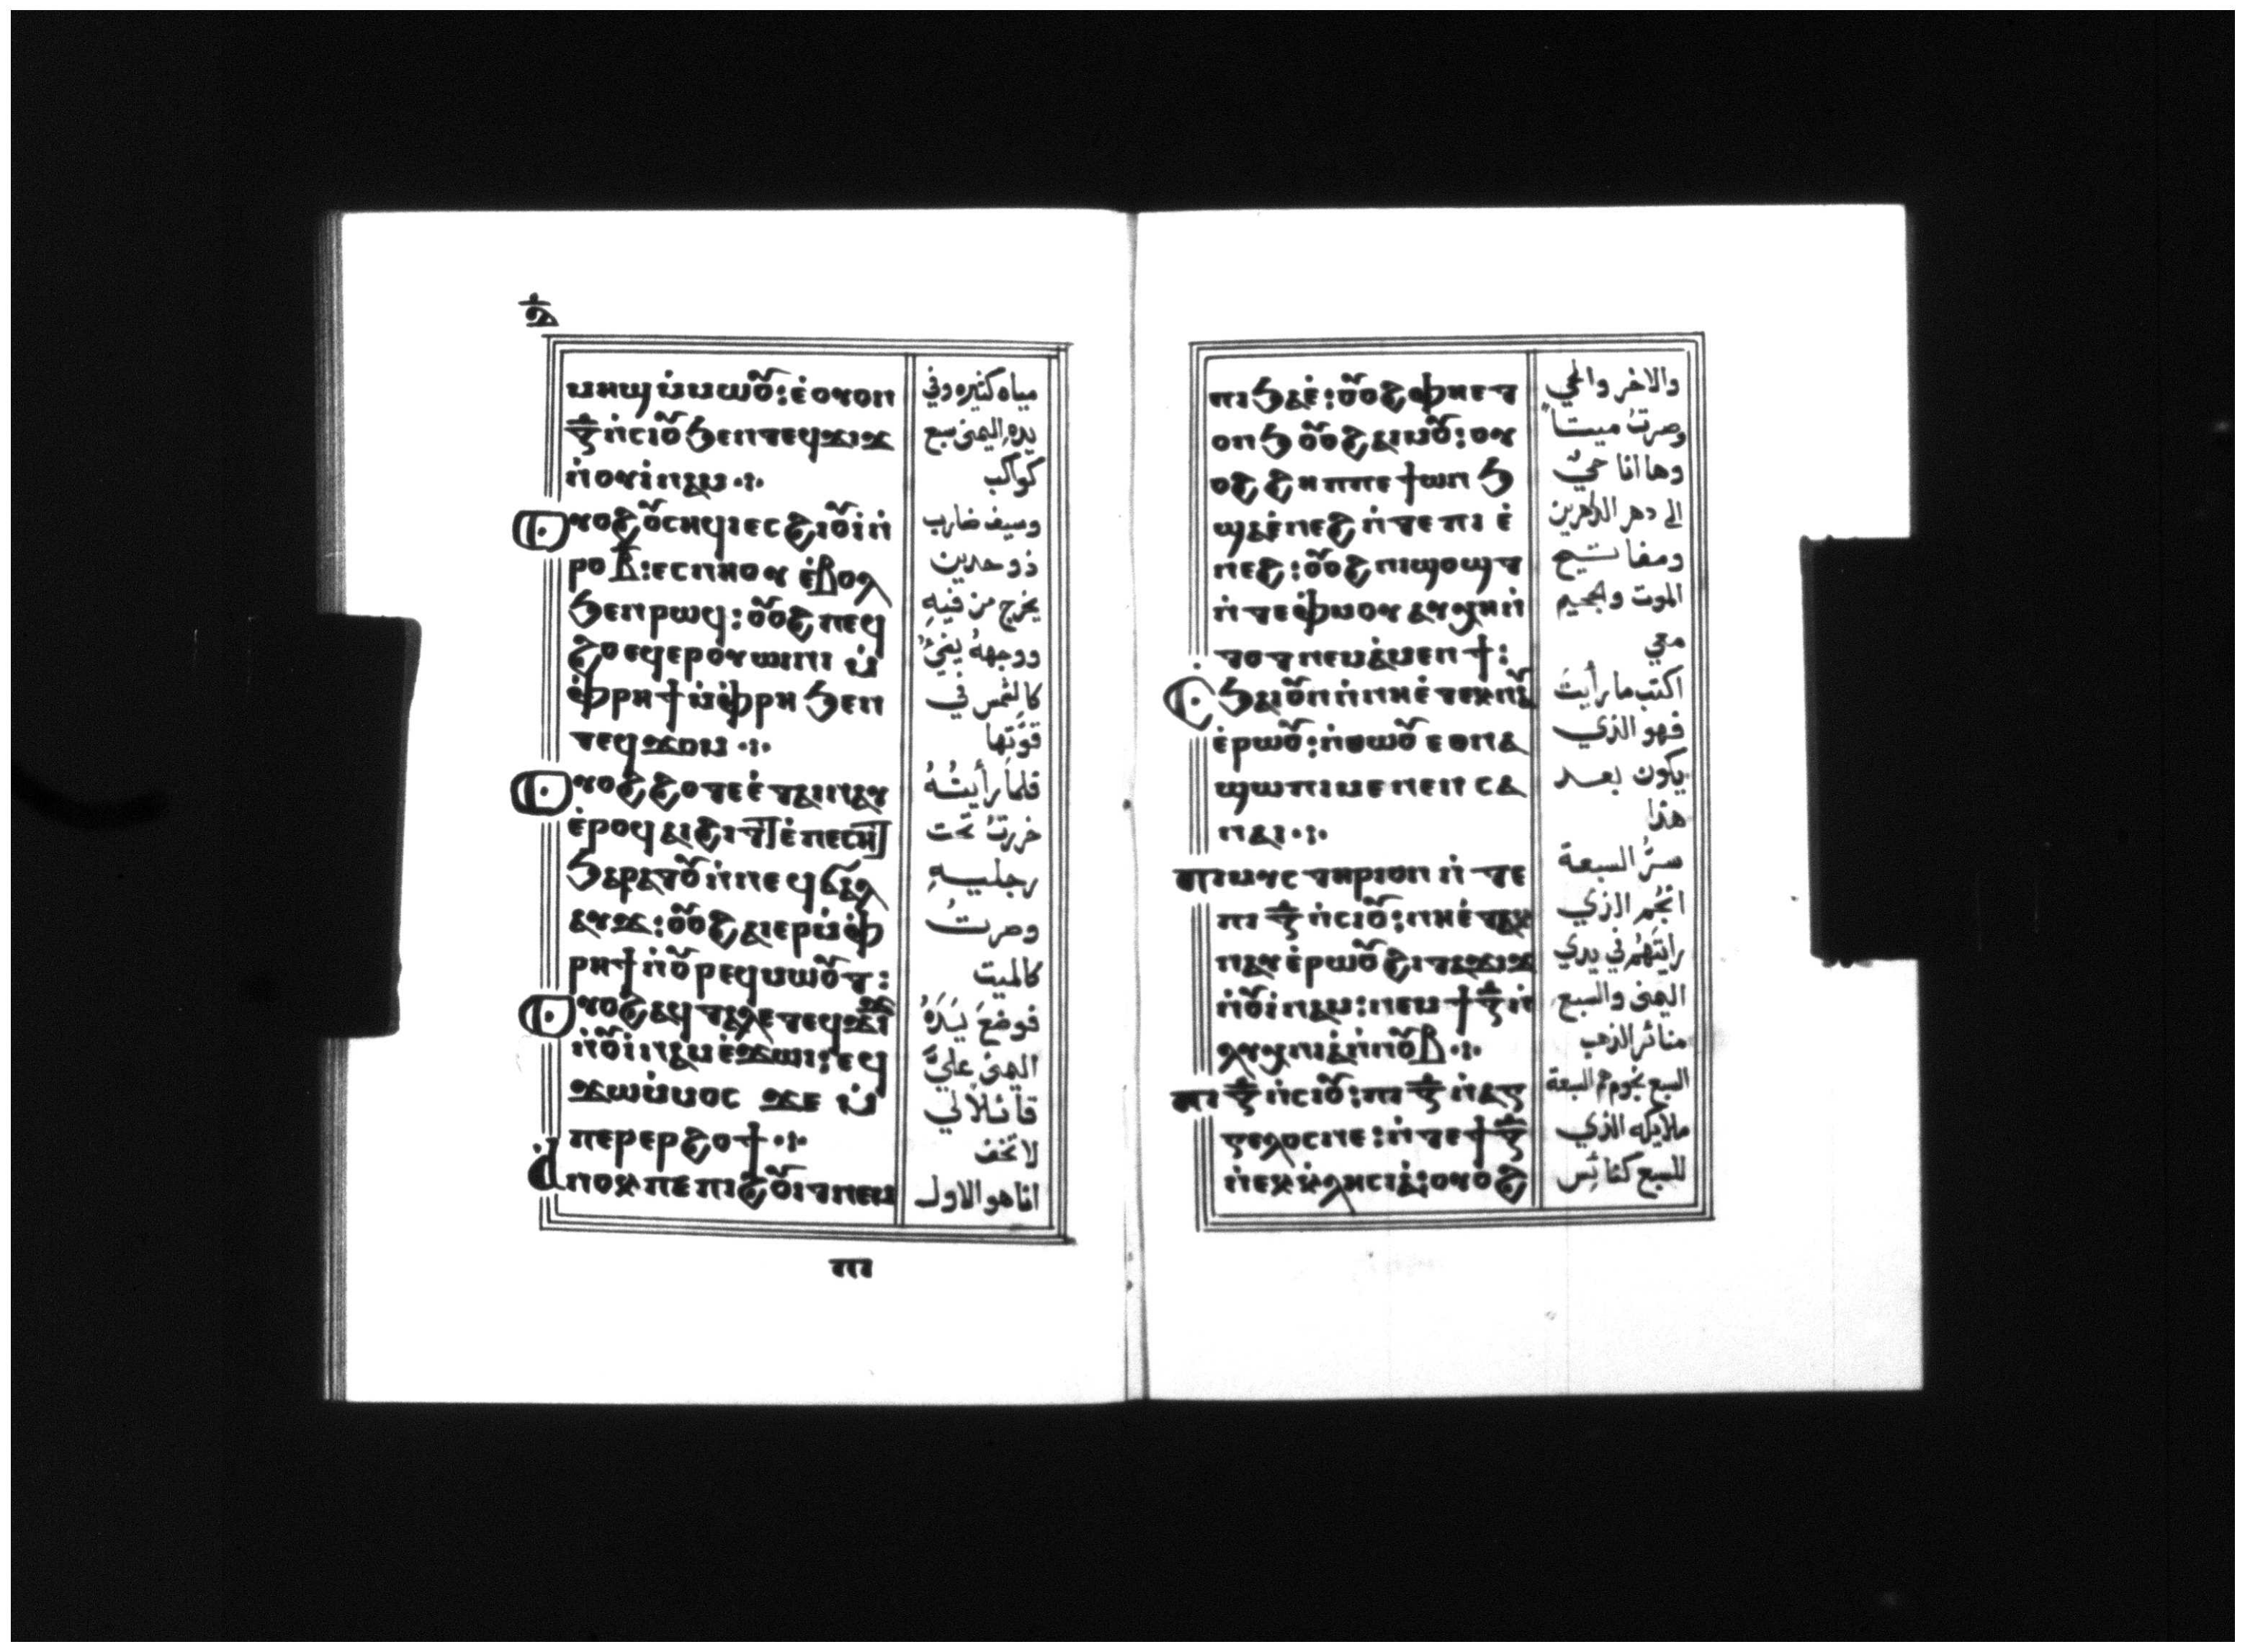 ⲑ̅
ⲙⲏϣ ⲙ̇ⲙⲱⲟⲩ: ⲉ̇ⲟⲩⲟⲛ
ⲍ̅ ⲛ̇ⲥⲓⲟⲩ ϧⲉⲛ ⲧⲉϥϫⲓϫ
ⲛ̇ⲟⲩⲓ̇ⲛⲁⲙ ·:·
ⲟⲩⲟϩ ⲟⲩⲥⲏϥⲓ ⲉⲥϩⲓⲟⲩⲓ̇ ⲛ̇
ⲣⲟ ⲃ̅: ⲉⲥⲛⲏⲟⲩ ⲉ̇ⲃⲟⲗ
ϧⲉⲛ ⲣⲱϥ: ⲟⲩⲟϩ ⲡⲉϥ
ϩⲟ ⲉϥⲉⲣⲟⲩⲱⲓⲛⲓ ⲙ̇
ⲫ̇ⲣⲏϯ ⲙ̇ⲫ̇ⲣⲏ ϧⲉⲛ
ⲧⲉϥϫⲟⲙ ·:·
ⲟⲩⲟϩ ϩⲟⲧⲉ ⲉ̇ⲧⲁⲓⲛⲁⲩ
ⲉ̇ⲣⲟϥ ⲁⲓϩⲓⲧⲧ ⲉ̇ⲡⲉⲥⲏⲧ
ϧⲁⲣⲁⲧⲟⲩ ⲛ̇ⲛⲉϥϭⲁⲗ
ⲁⲩϫ: ⲟⲩⲟϩ ⲁⲓⲉⲣ ⲙ̇ⲫ̇
ⲣⲏϯ ⲛ̇ⲟⲩⲣⲉϥⲙⲱⲟⲩⲧ:
ⲟⲩⲟϩ ⲁϥⲧⲁⲗⲉ ⲧⲉϥϫⲓϫ
ⲛ̇ⲟⲩⲓ̇ⲛⲁⲙ ⲉ̇ϫⲱⲓ: ⲉϥ
ϫⲱ ⲙ̇ⲙⲟⲥ ϫⲉ ⲙ̇
ⲡⲉⲣⲉⲣϩⲟϯ ·:·
ⲁ̇ⲛⲟⲕ ⲡⲉ ⲡⲓϩⲟⲩⲓⲧ ⲛⲉⲙ
مياه كثيره وفي
يده اليمنى سبع
كواكب
وسيف ضارب
ذو حدين
يخرج من فيه
ووجهه يضيُ
كالشمس في
قوتها
فلما رأيتُهُ
خررتُ تحت
رجليه
وصرتُ
كالميت
فوضع يَدَهُ
اليمنى عليَّ
قائلاً لي
لا تخف
انا هو الاول
ⲡⲓ
ⲡⲓϧⲁⲉ̇: ⲟⲩⲟϩ ⲫⲏⲉⲧ
ⲟⲛϧ ⲟⲩⲟϩ ⲁⲓⲙⲟⲩ: ⲟⲩ
ⲟϩ ϩⲏⲡⲡⲉ ϯⲱⲛϧ
ϣⲁⲉ̇ⲛⲉϩ ⲛ̇ⲧⲉ ⲡⲓⲉ̇
ⲛⲉϩ: ⲟⲩⲟϩ ⲛⲓϣⲟϣⲧ
ⲛ̇ⲧⲉ ⲫ̇ⲙⲟⲩ ⲁⲩⲭⲏ ⲛ̇
ⲧⲟⲧ ⲛⲉⲙ ⲁ̇ⲙⲉⲛϯ:
ⲥϧⲁⲓ ⲟⲩⲛ ⲛ̇ⲛⲏⲉ̇ⲧⲉⲕⲛⲁⲩ
ⲉ̇ⲣⲱⲟⲩ: ⲛ̇ⲑⲱⲟⲩ ⲉⲑⲛⲁ
ϣⲱⲡⲓ ⲙⲉⲛⲉⲛⲥⲁ
ⲛⲁⲓ ·:·
ⲡⲓⲙⲩⲥⲧⲏⲣⲓⲟⲛ ⲛ̇ⲧⲉ
ⲡⲓ ⲍ̅ ⲛ̇ⲥⲓⲟⲩ: ⲛⲏⲉ̇ⲧⲁⲕ
ⲛⲁⲩ ⲉ̇ⲣⲱⲟⲩ ϩⲓ ⲧⲁϫⲓϫ
ⲛ̇ⲟⲩⲓ̇ⲛⲁⲙ: ⲛⲉⲙ ϯ ⲍ̅ ⲛ̇
ⲗⲩⲭⲛⲓⲁ̇ ⲛ̇ⲛⲟⲩⲃ ·:·
ⲡⲓ ⲍ̅ ⲛ̇ⲥⲓⲟⲩ: ⲡⲓ ⲍ̅ ⲛ̇ⲁⲅ
ⲅⲉⲗⲟⲥ ⲛⲉ: ⲛ̇ⲧⲉ ϯ ⲍ̅
ⲛ̇ⲉⲕⲕ̇ⲗⲏⲥⲓⲁ̇: ⲟⲩⲟϩ
والاخر والحي
وصرتُ ميتاً
وها انا حيٌ
الى دهر الداهرين
ومفاتيح
الموت والجحيم
معي
اكتب ما رأيتَ
فهو الذي
يكون بعد
هذا
سرُّ السبعة
انجُمِ الذي
رايتَهُم في يدي
اليمنى والسبع
منائر الذهب
السبع نجوم هم السبعة
ملايكه الذي
للسبع كنائِس